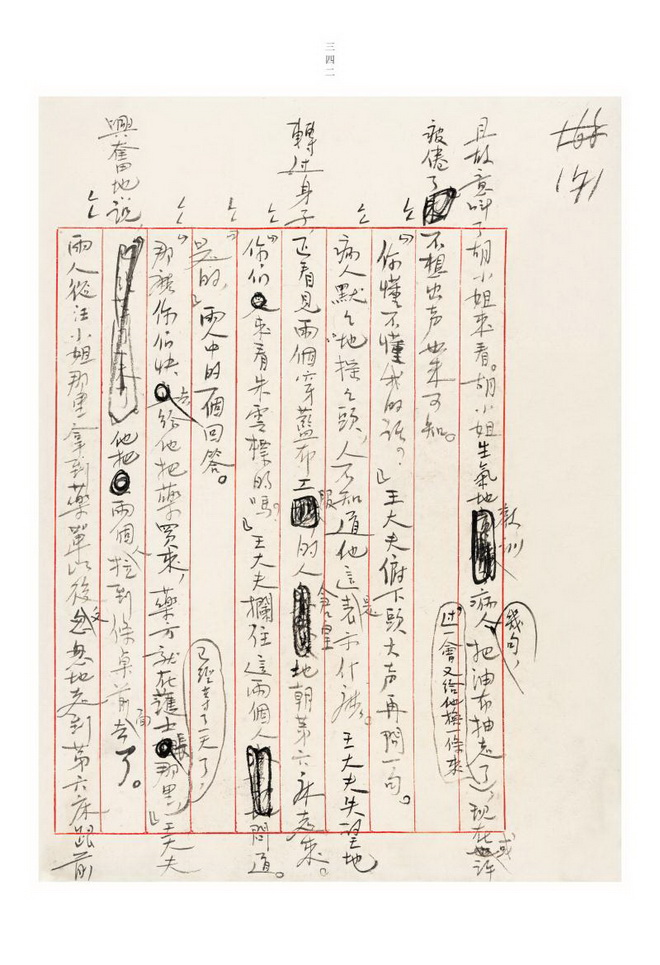 三四二
171
且故意叫了胡小姐來看。胡小姐生氣地教訓病人幾句，把油布抽走了，過一會又給他換一條來，現在或許
疲倦了不想出声也未可知。
“你懂不懂我的話？”王大夫俯下頭大声再問一句。
病人默默地搖搖頭，人不知道他這是表示什麽。王大夫失望地
轉过身子，正看見兩個穿藍布工服的人倉皇地朝第六床走來。
“你們來看朱雲標的嗎？”王大夫攔住這兩個人問道。
“是的，”兩人中的一個回答。
“那麽你們快去給他把藥買來，藥方就在護士長那里，已經等了一天了，”王大夫
興奮地說，他把兩個人拉到條桌前面去了。
兩人從汪小姐那里拿到藥單以後又怱怱地走到第六床跟前